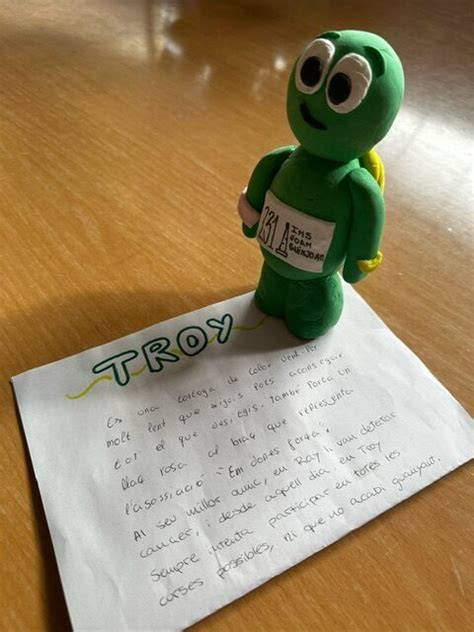 131 A
INS
JOAN
GUINJOAN
TROY
Es una tortuga de color verd. Per
molt lent que siguis pots aconseguir
tot el que desitgis. També porta un
llaç rosa al braç que representa
l'asossiació "Em dones força".
Al seu millor amic, en Ray li van detectar
cancer, i desde aquell dia en Troy
sempre intenta participar en totes les
curses possibles, ni que no acabi guanyant.